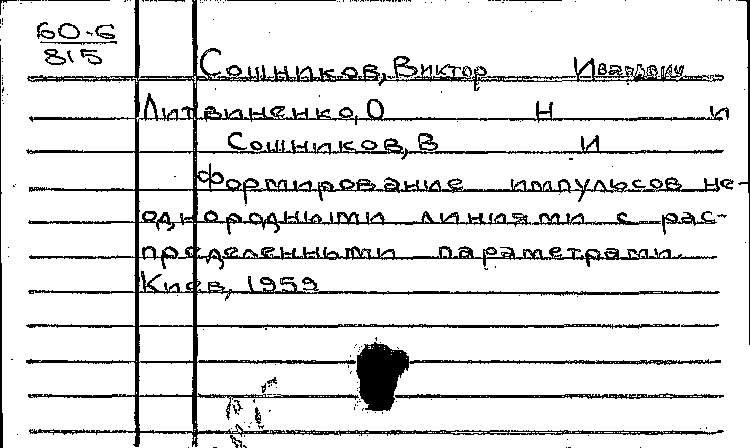 60-6
815
Сошников, Виктор Иванович
Литвиненко, О Н и
Сошников, В И
Формирование импульсов не-
однородными линиями с рас-
пределенными параметрами.
Киев, 1959